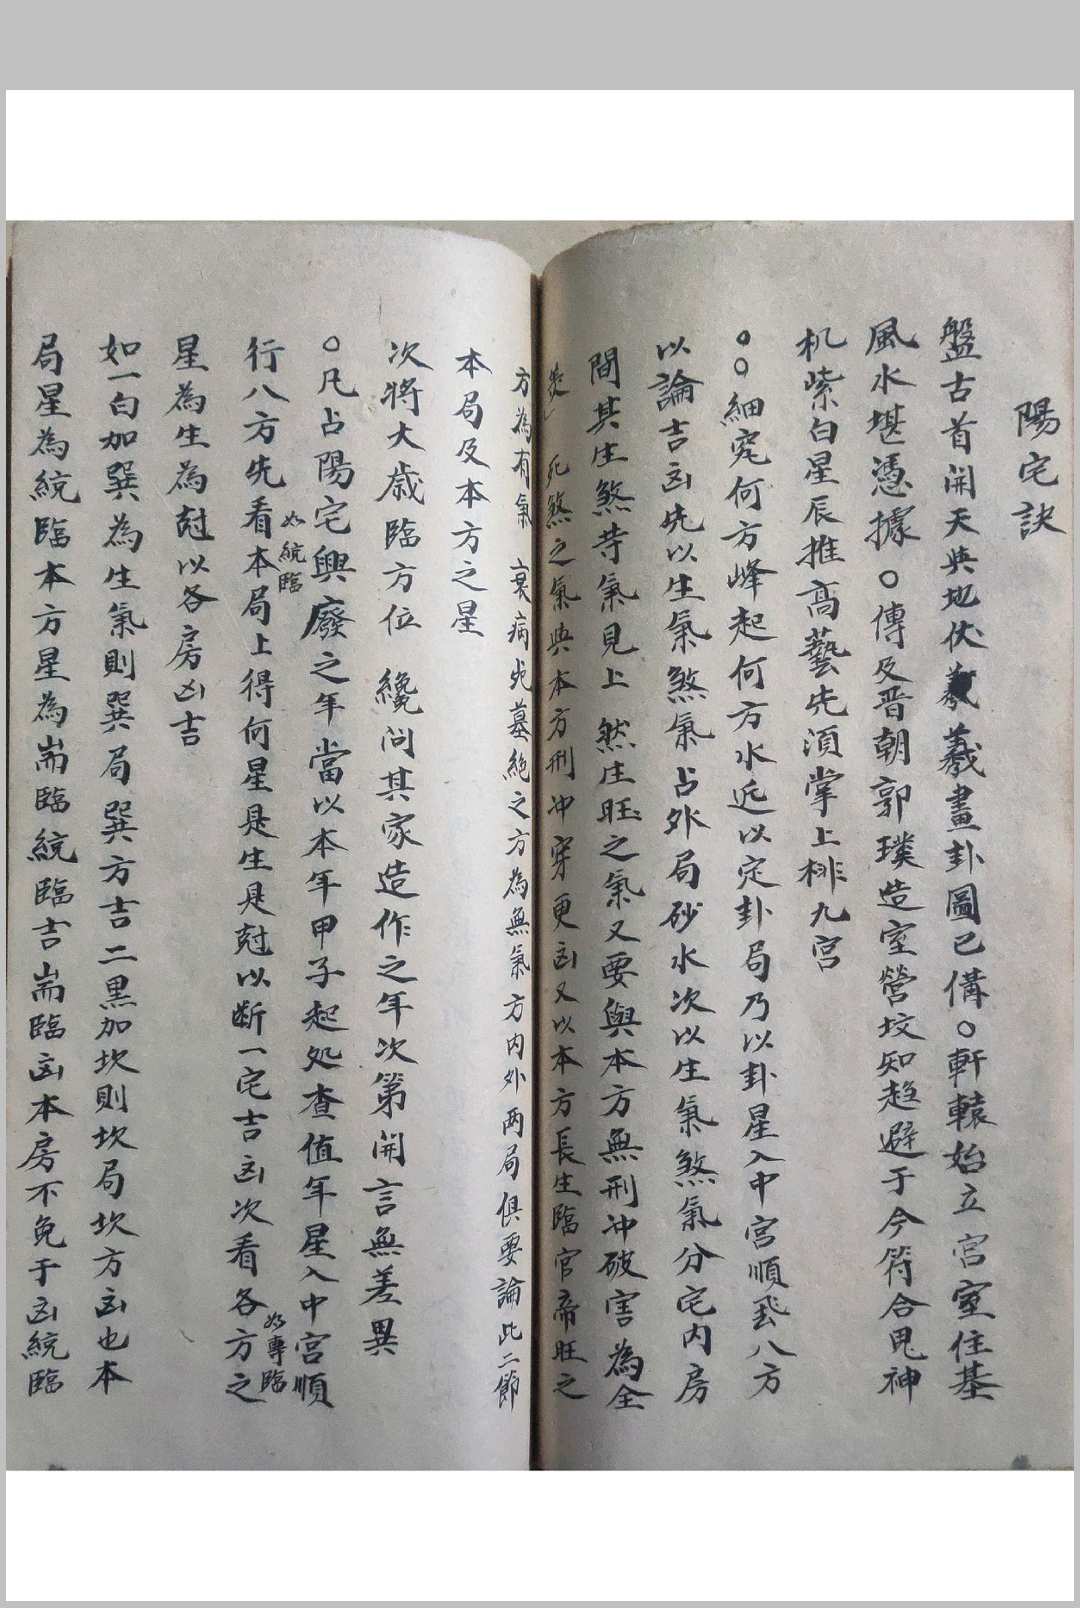 陽宅訣
盤古首開天與地伏羲畫卦圖已備○軒轅始立宮室住基
風水堪憑據○傳及晋朝郭璞造室營坟知趋避于今符合鬼神
机紫白星辰推高藝先須掌上排九宮
○○細究何方峰起何方水近以定卦局乃以卦星入中宮順飛八方
以論吉凶先以生氣煞氣占外局砂水次以生氣煞氣分宅内房
間其生煞等氣見上 然生旺之氣又要與本方無刑冲破害為全
美 死煞之氣與本方刑冲穿更凶又以本方長生臨官帝旺之
方為有氣 衰病死墓絶之方為無氣方内外两局俱要論此二節
本局及本方之星
次將大歲臨方位 纔问其家造作之年次第開言無差異
○凡占陽宅興廢之年當以本年甲子起处查值年星入中宮順
行八方先看本局上得何星是生是尅以断一宅吉凶次看各方之
如統臨
如專臨
星為生為尅以各房凶吉
如一白加巽為生氣則巽局巽方吉二黒加坎則坎局坎方凶也本
局星為統臨本方星為耑臨統臨吉耑臨凶本房不免于凶統臨